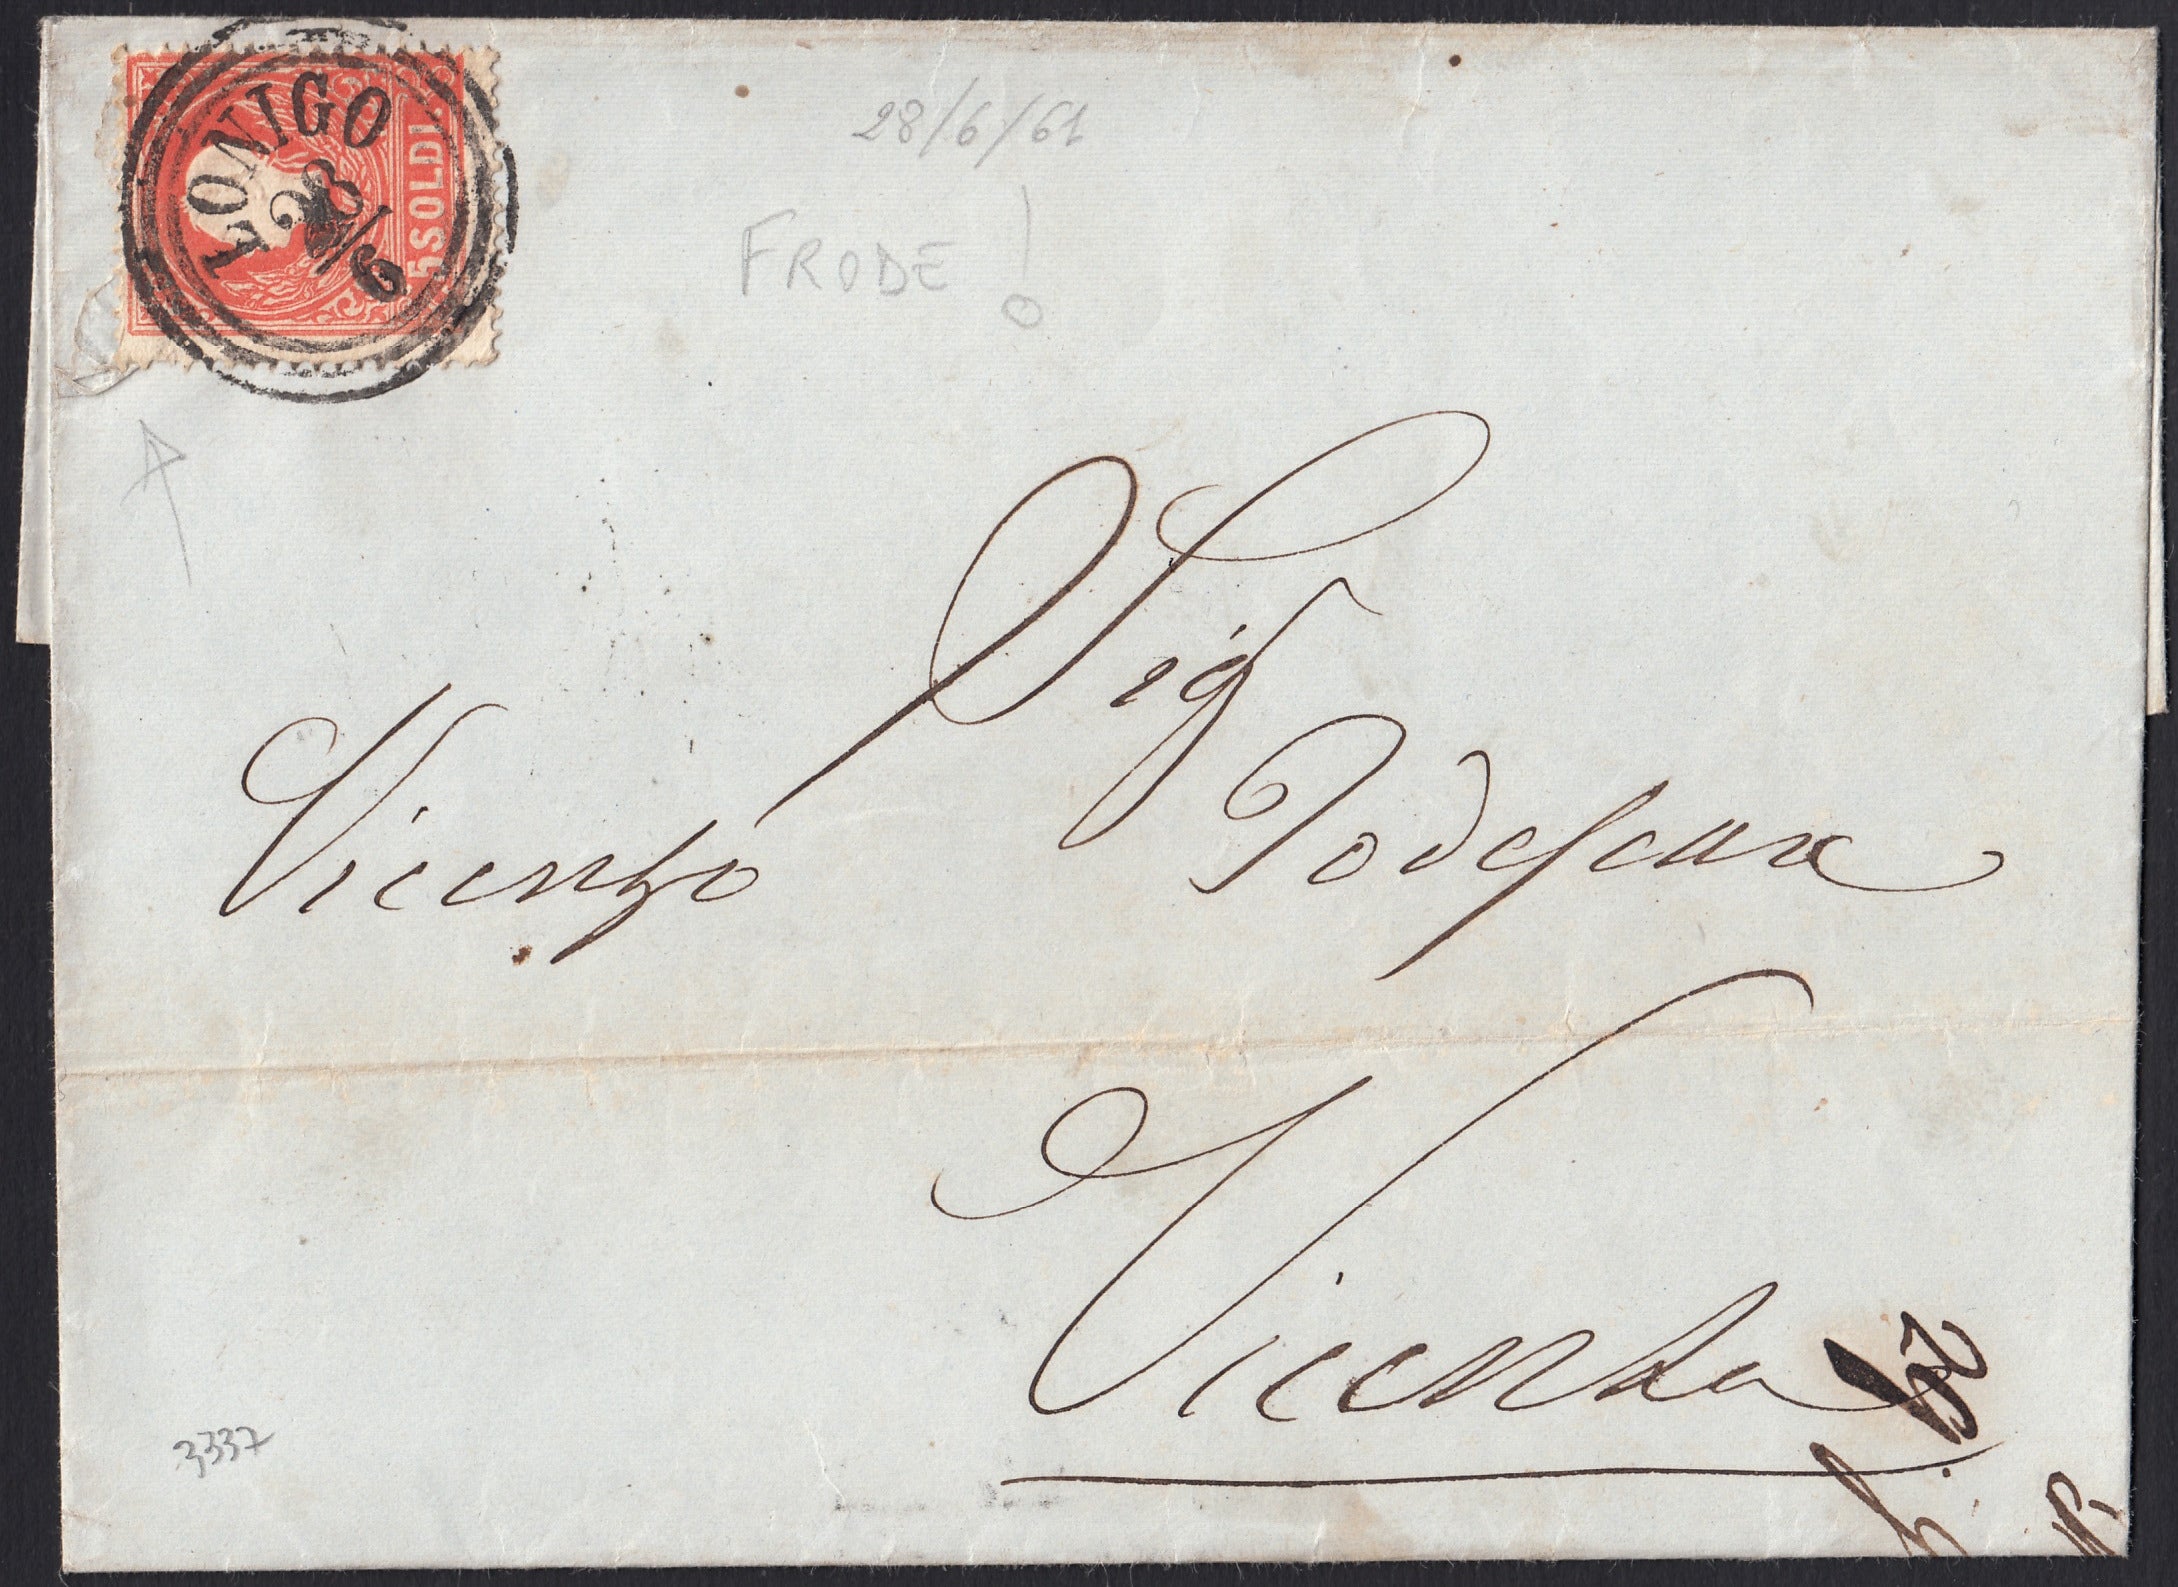 LONIGO
28/6
5 SOLDI
28/6/61
FRODE!
Sig
Vicenzo Todescan
Vicenza
3337